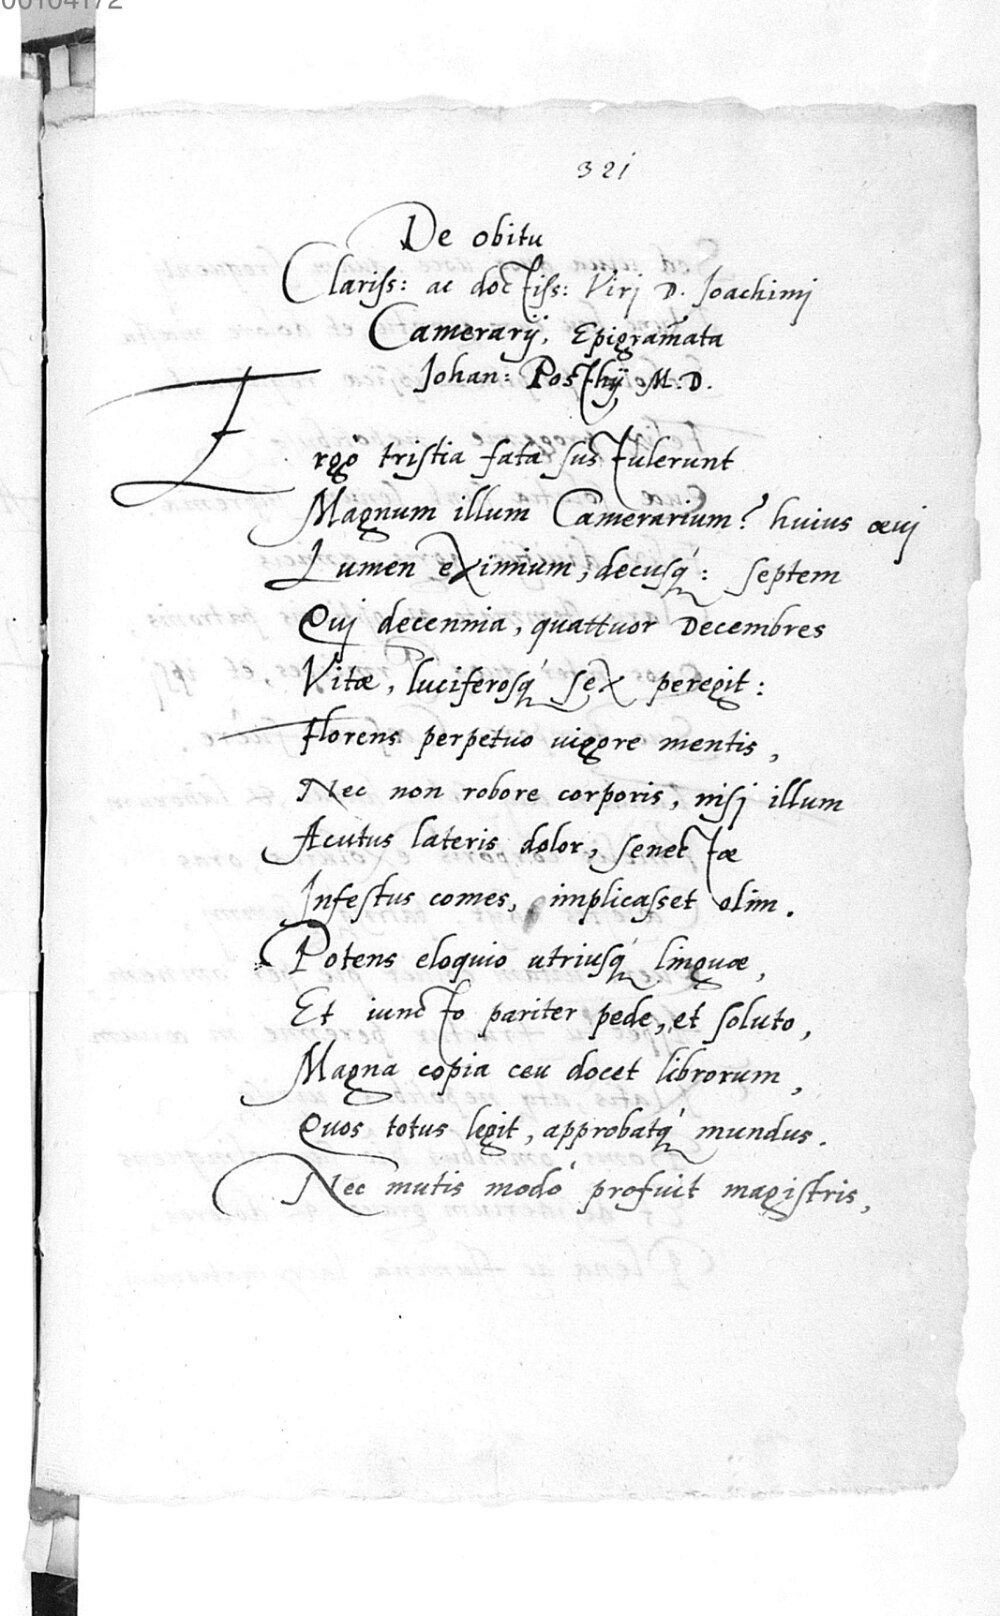 00104172
321
De obitu
Clariss: ac doctiss: Viri D. Joachimi
Camerarij, Epigram̃ata
Johan: Posthij M.D.
Ergò tristia fata sustulerunt
Magnum illum Camerarium? huius æui
Lumen eximium, decusq́: septem
Qui decennia, quattuor Decembres
Vitæ, luciferosq́ sex peregit:
Florens perpetuo uigore mentis,
Nec non robore corporis, nisi illum
Acutus lateris dolor, senectæ
Infestus comes, implicasset olim.
Potens eloquio utriusq́ linguæ,
Et iuncto pariter pede, et soluto,
Magna copia ceu docet librorum,
Quos totus legit, approbatq́ mundus.
Nec mutis modò profuit magistris,